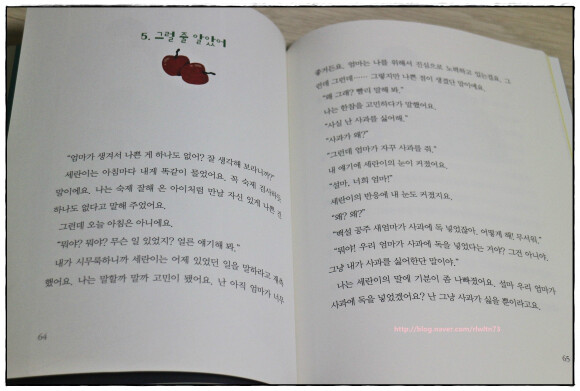 5. 그럴 줄 알았어
“엄마가 생겨서 나쁜 게 하나도 없어? 잘 생각해 보라니까?”
세란이는 아침마다 내게 똑같이 물었어요. 꼭 숙제 검사하듯
말이에요. 나는 숙제 잘해 온 아이처럼 만날 자신 있게 나쁜 건
하나도 없다고 말해 주었어요.
그런데 오늘 아침은 아니에요.
“뭐야? 뭐야? 무슨 일 있었지? 얼른 얘기해 봐.”
내가 시무룩하니까 세란이는 어제 있었던 일을 말하라고 재촉
했어요. 나는 말할까 말까 고민이 됐어요. 난 아직 엄마가 너무
64
좋거든요. 엄마는 나를 위해서 진심으로 노력하고 있는걸요. 그
런데 그런데…… 그렇지만 나쁜 점이 생겼단 말이에요.
“왜 그래? 빨리 말해 봐.”
나는 한참을 고민하다가 말했어요.
“사실 난 사과를 싫어해.”
“사과가 왜?”
“그런데 엄마가 자꾸 사과를 줘.”
내 얘기에 세란이의 눈이 커졌어요.
“설마, 너희 엄마!”
세란이의 반응에 내 눈도 커졌지요.
“왜? 왜?”
“백설 공주 새엄마가 사과에 독 넣었잖아. 어떻게 해! 무서워.”
“뭐야! 우리 엄마가 사과에 독을 넣었다는 거야? 그건 아니야.
그냥 내가 사과를 싫어한단 말이야.”
나는 세란이의 말에 기분이 좀 나빠졌어요. 설마 우리 엄마가
사과에 독을 넣었겠어요? 난 그냥 사과가 싫을 뿐이라고요.
65